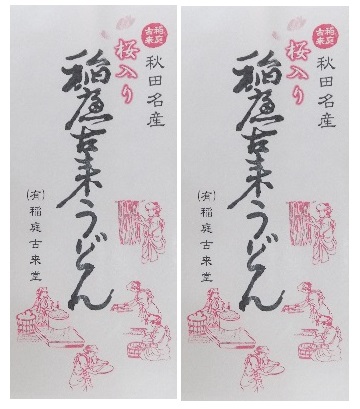 稲庭
古来
秋田名産
桜入り
稲庭古来うどん
(有)稲庭古来堂
稲庭
古来
秋田名産
桜入り
稲庭古来うどん
(有)稲庭古来堂